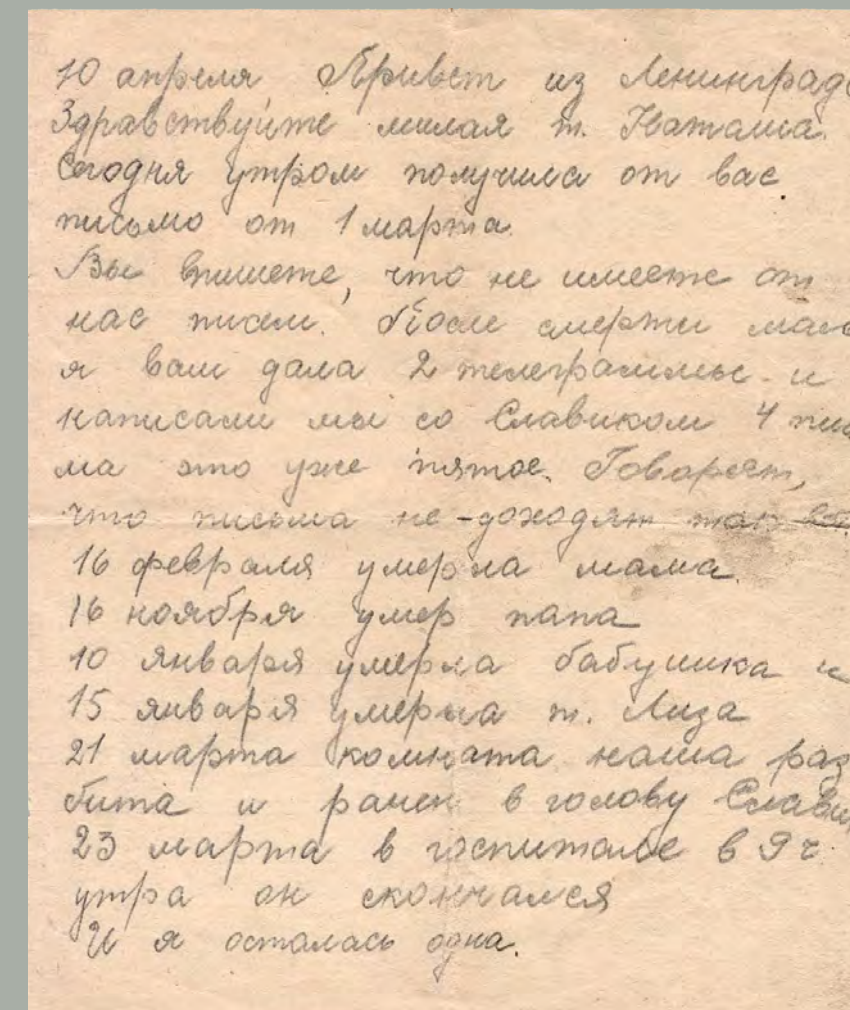 10 апреля Привет из Ленинграда
Здравствуйте милая т. Наташа.
Сегодня утром получила от вас
письмо от 1 марта.
Вы пишете, что не имеете от
нас писем. После смерти мам
я вам дала 2 телеграммы и
написали мы со Славиком 4 пис
ма это уже пятое. Говорят,
что письма не-доходят так
16 февраля умерла мама.
16 ноября умер папа
10 января умерла бабушка и
15 января умерла т. Лиза
21 марта комната наша раз
бита и ранен в голову Слави
23 марта в госпитале в 9 ч.
утра он скончался
И я осталась одна.